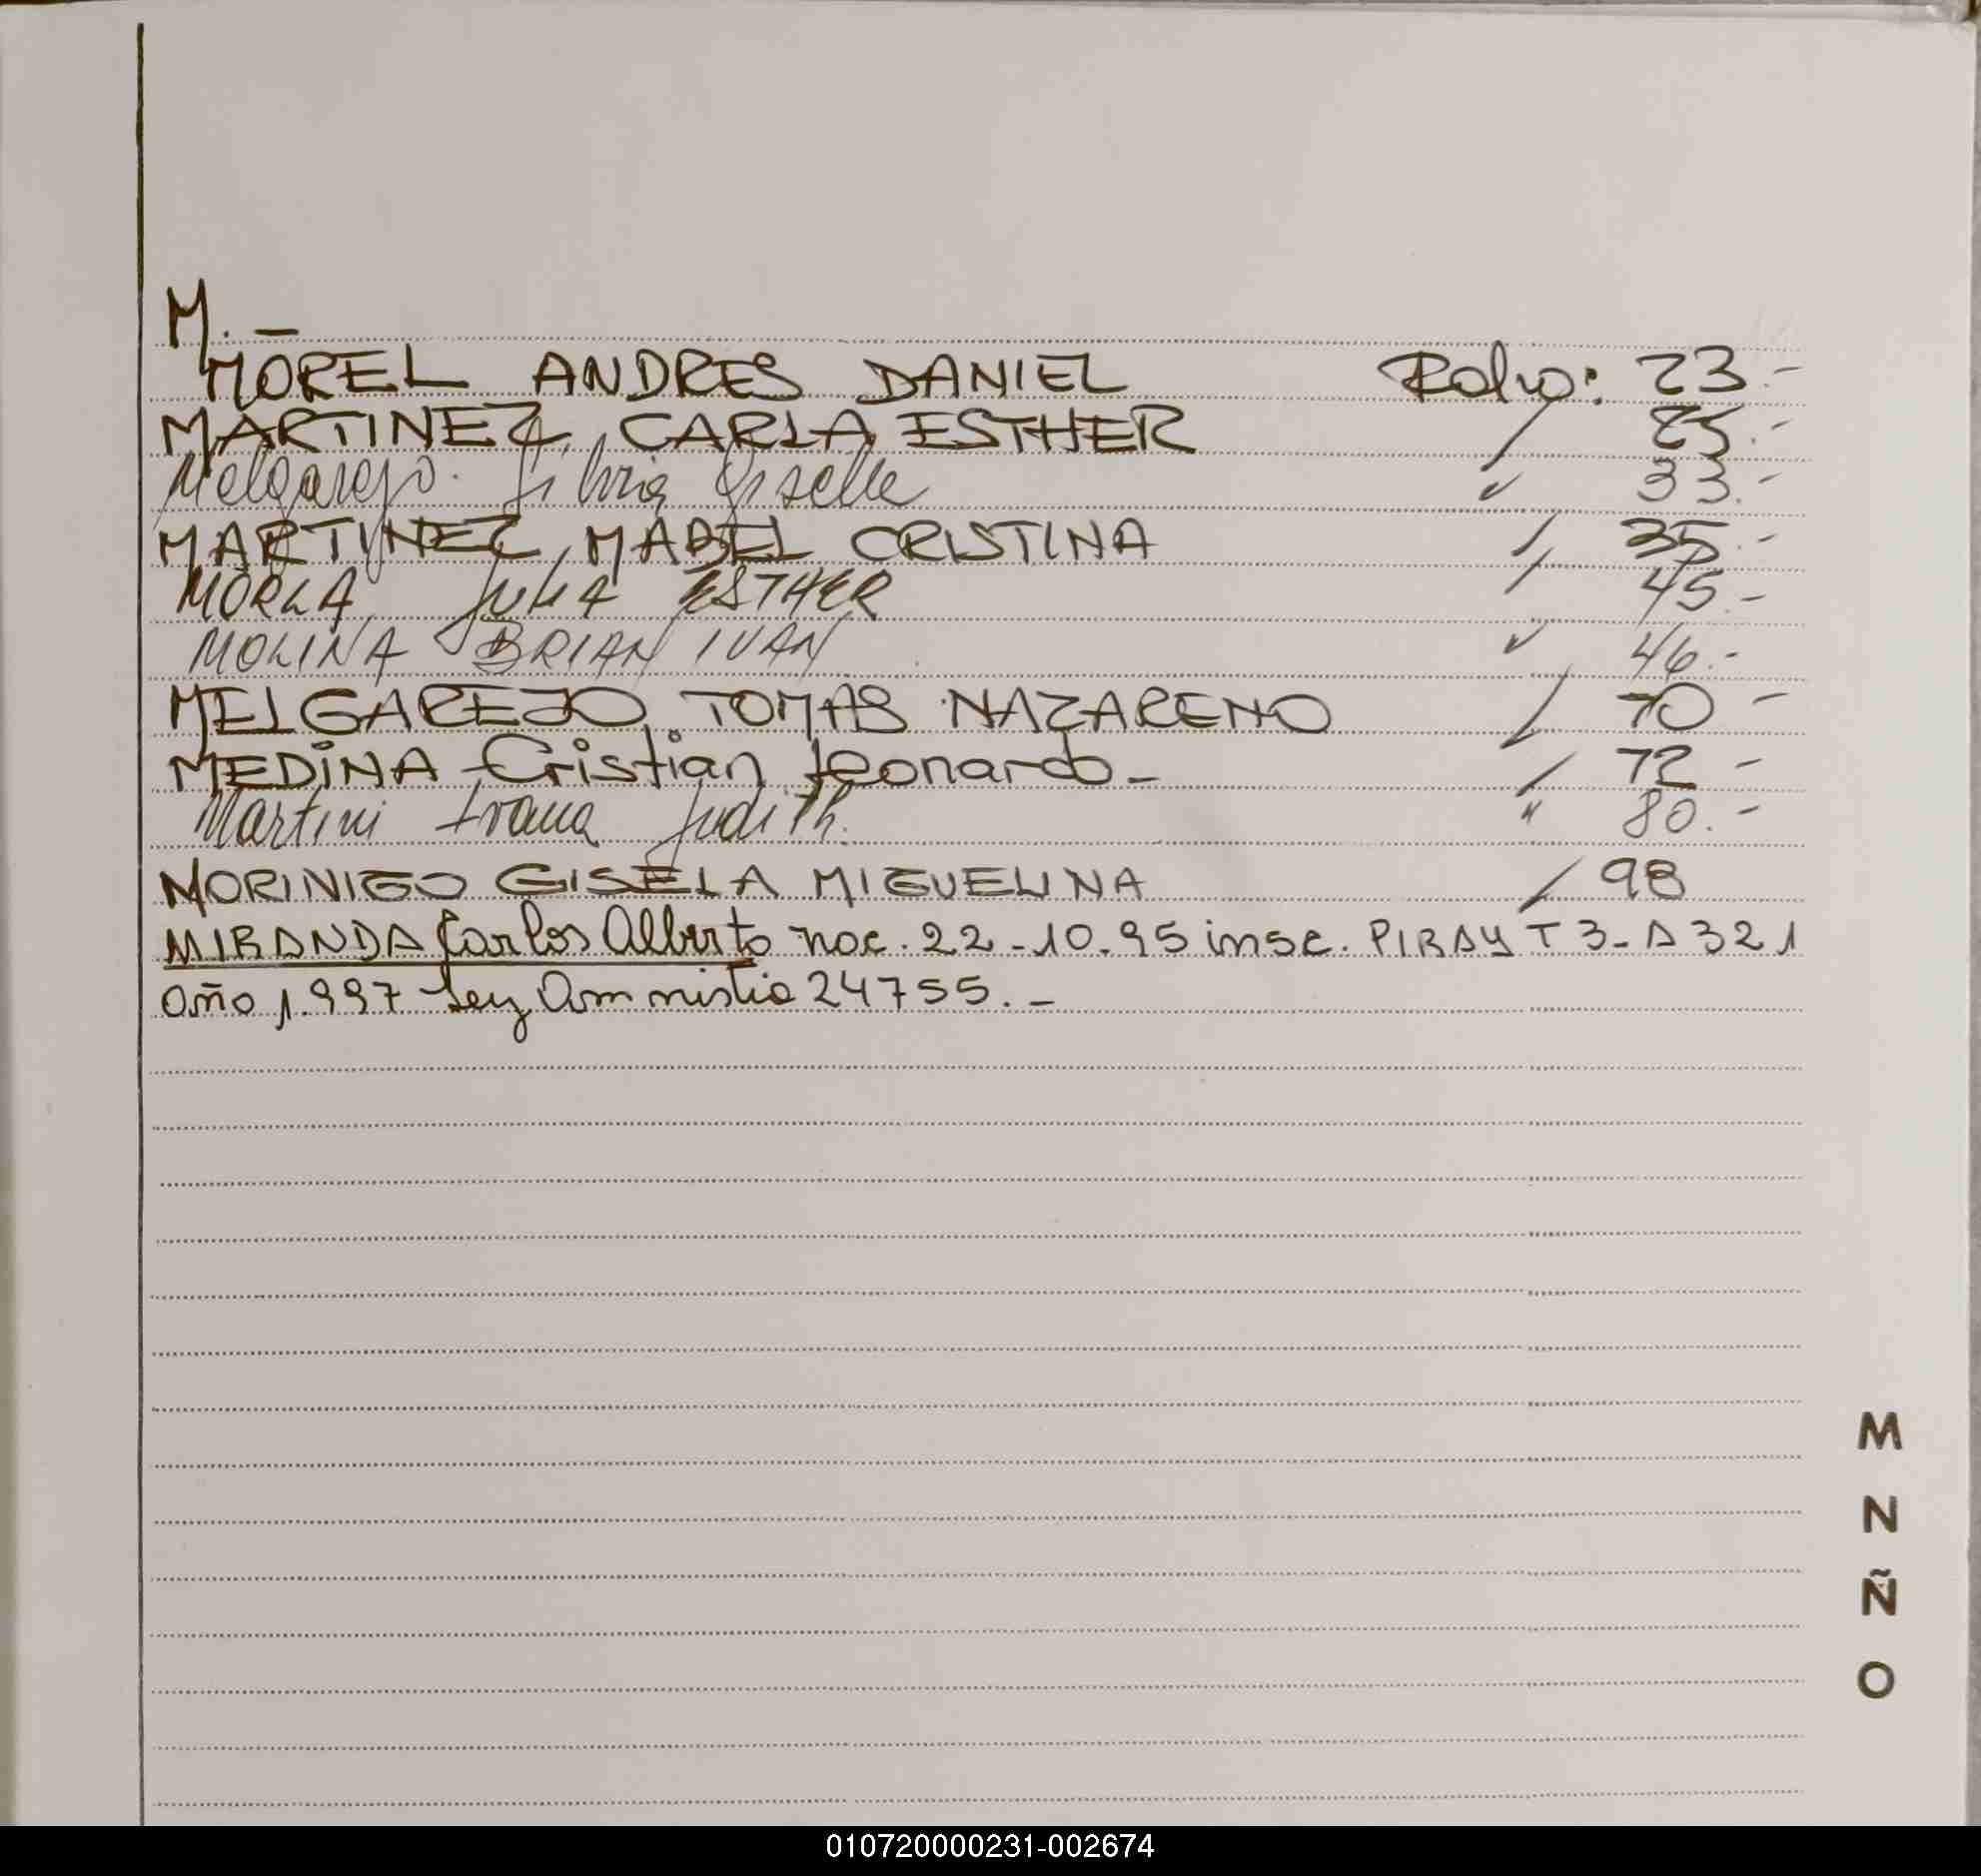 M. –
MOREL ANDRES DANIEL Folio: 23.-
MARTINEZ, CARLA ESTHER / 25.-
Melgarejo. Silvia Giselle " 33.-
MARTINEZ, MABEL CRISTINA / 35.-
MORLA, Julia ESTHER / 45.-
MOLINA BRIAN IVAN " 46.-
MELGAREJO, TOMAS NAZARENO / 70 -
MEDINA Cristian Leonardo - / 72 -
Martini Ivana Judith. " 80.-
MORINIGO GISELA MIGUELINA / 98
MIRANDA Carlos Alberto nac. 22-10.95 insc. PIRAY T 3- A 321
año 1.997 Ley Amnistia 24755.-
M
N
Ñ
O
010720000231-002674